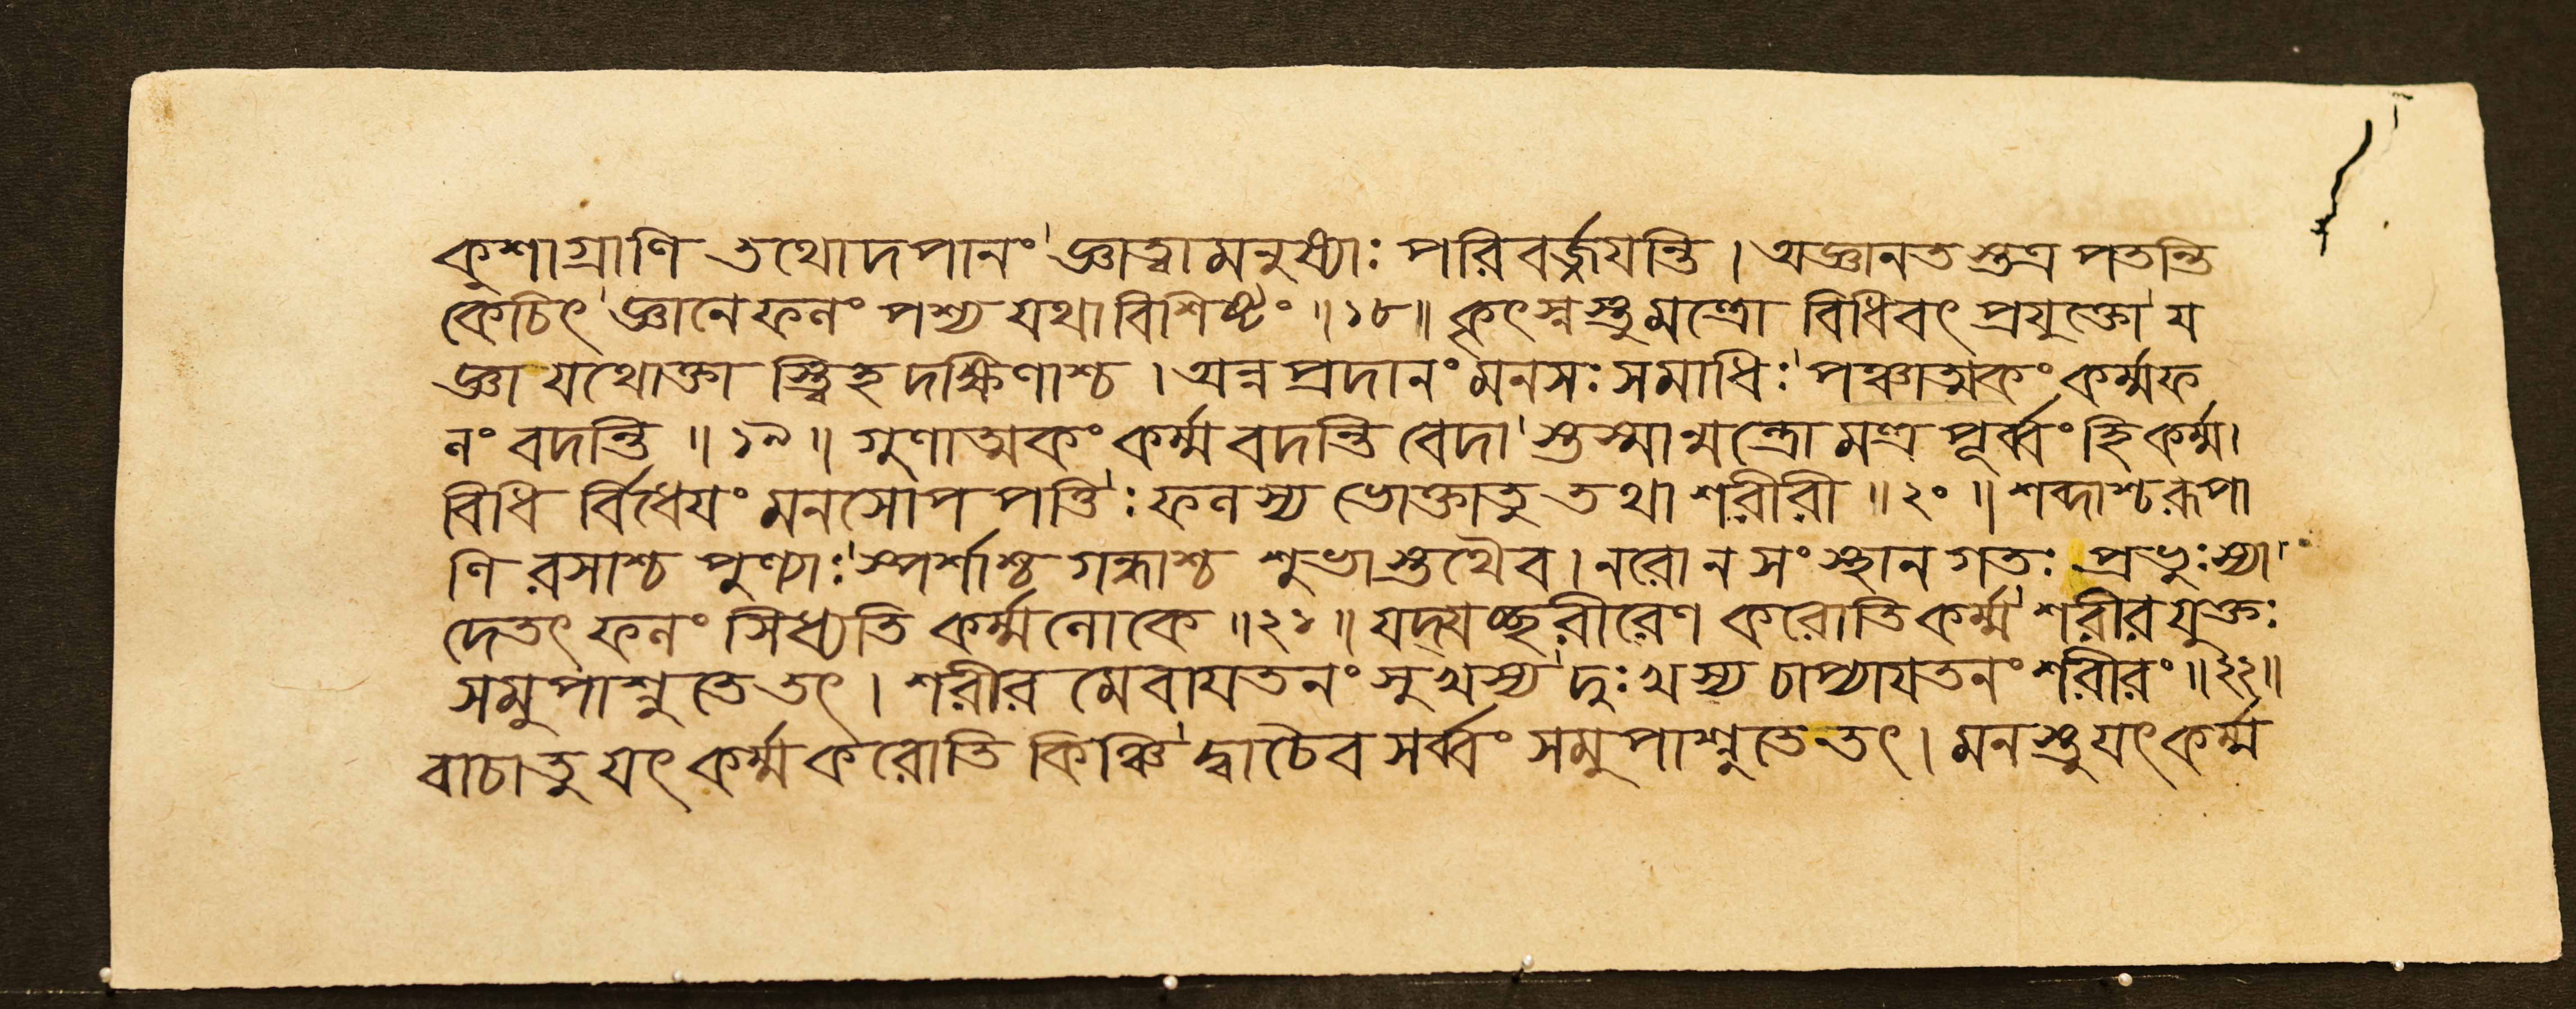 কুশাগ্রাণি তথোদপানং'জ্ঞাত্বামনুষ্যাঃ পরিবর্জ্জয়ন্তি। অজ্ঞানতস্তত্র পতন্তি
কেচিৎ'জ্ঞানেফলং পশ্য যথাবিশিষ্টং॥১৮॥ কৃৎস্নস্তুমন্ত্রো বিধিবৎ প্রযুক্তো'য
জ্ঞা যথোক্তা স্ত্বিহ দক্ষিণাশ্চ। অন্নপ্রদানং মনসঃ সমাধিঃ'পঞ্চাত্মকং কর্ম্মফ
লং বদন্তি॥১৯॥ গুণাত্মকং কর্ম্ম বদন্তি বেদা'স্তস্মান্মন্ত্রো মন্ত্র পূর্ব্বং হি কর্ম্ম।
বিধি র্বিধেয়ং মনসোপ পত্তি'ঃ ফলস্য ভোক্তাতু তথা শরীরী॥২০॥ শব্দাশ্চরূপা
ণি রসাশ্চ পুণ্যাঃ'স্পর্শাশ্চ গন্ধাশ্চ শুভাস্তথৈব। নরোন সংস্থান গতঃ প্রভুঃস্যা'
দেতৎ ফলং সিধ্যতি কর্ম্মলোকে॥২১॥ যদ্যচ্ছরীরেণ করোতি কর্ম্ম'শরীরযুক্তঃ
সমুপাশ্নুতেতৎ। শরীর মেবায়তনং সুখস্য'দুঃখস্য চাপ্যায়তনং শরীরং॥২২॥
বাচাতু যৎ কর্ম্ম করোতি কিঞ্চি'দ্বাচৈব সর্ব্বং সমুপাশ্নুতে তৎ। মনস্তু যৎ কর্ম্ম